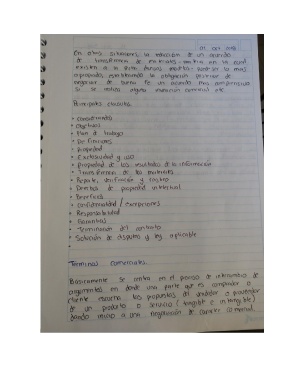 01 oct 2018
En otras situaciones, la redacción de un acuerdo
de transferencia de materiales
existen a la
apropiado, estableciendo la obligación posterior de
negociar de buena fe un acuerdo mas
si se realiza alguna invención comercial etc.
Principales clausulas
• considerandos
• Objetivos
• Plan de trabajo
• Definiciones
• Propiedad
• Exclusividad y uso
• Propiedad de los resultados de la información
• Transferencia de los materiales
• Reporte, verificación y
• Derechos de propiedad intelectual
• Beneficios
• Confidencialidad / excepciones
• Responsabilidad
• Garantías
• Terminación del contrato
• Solución de disputas y ley aplicable
Terminos comerciales
Básicamente se centra en el proceso de intercambio de
argumentos en donde una parte que es comprador o
cliente escucha las propuestas del vendedor o proveedor
de un producto o servicio (tangible e intangible)
dando inicio a una negociación de caracter comercial